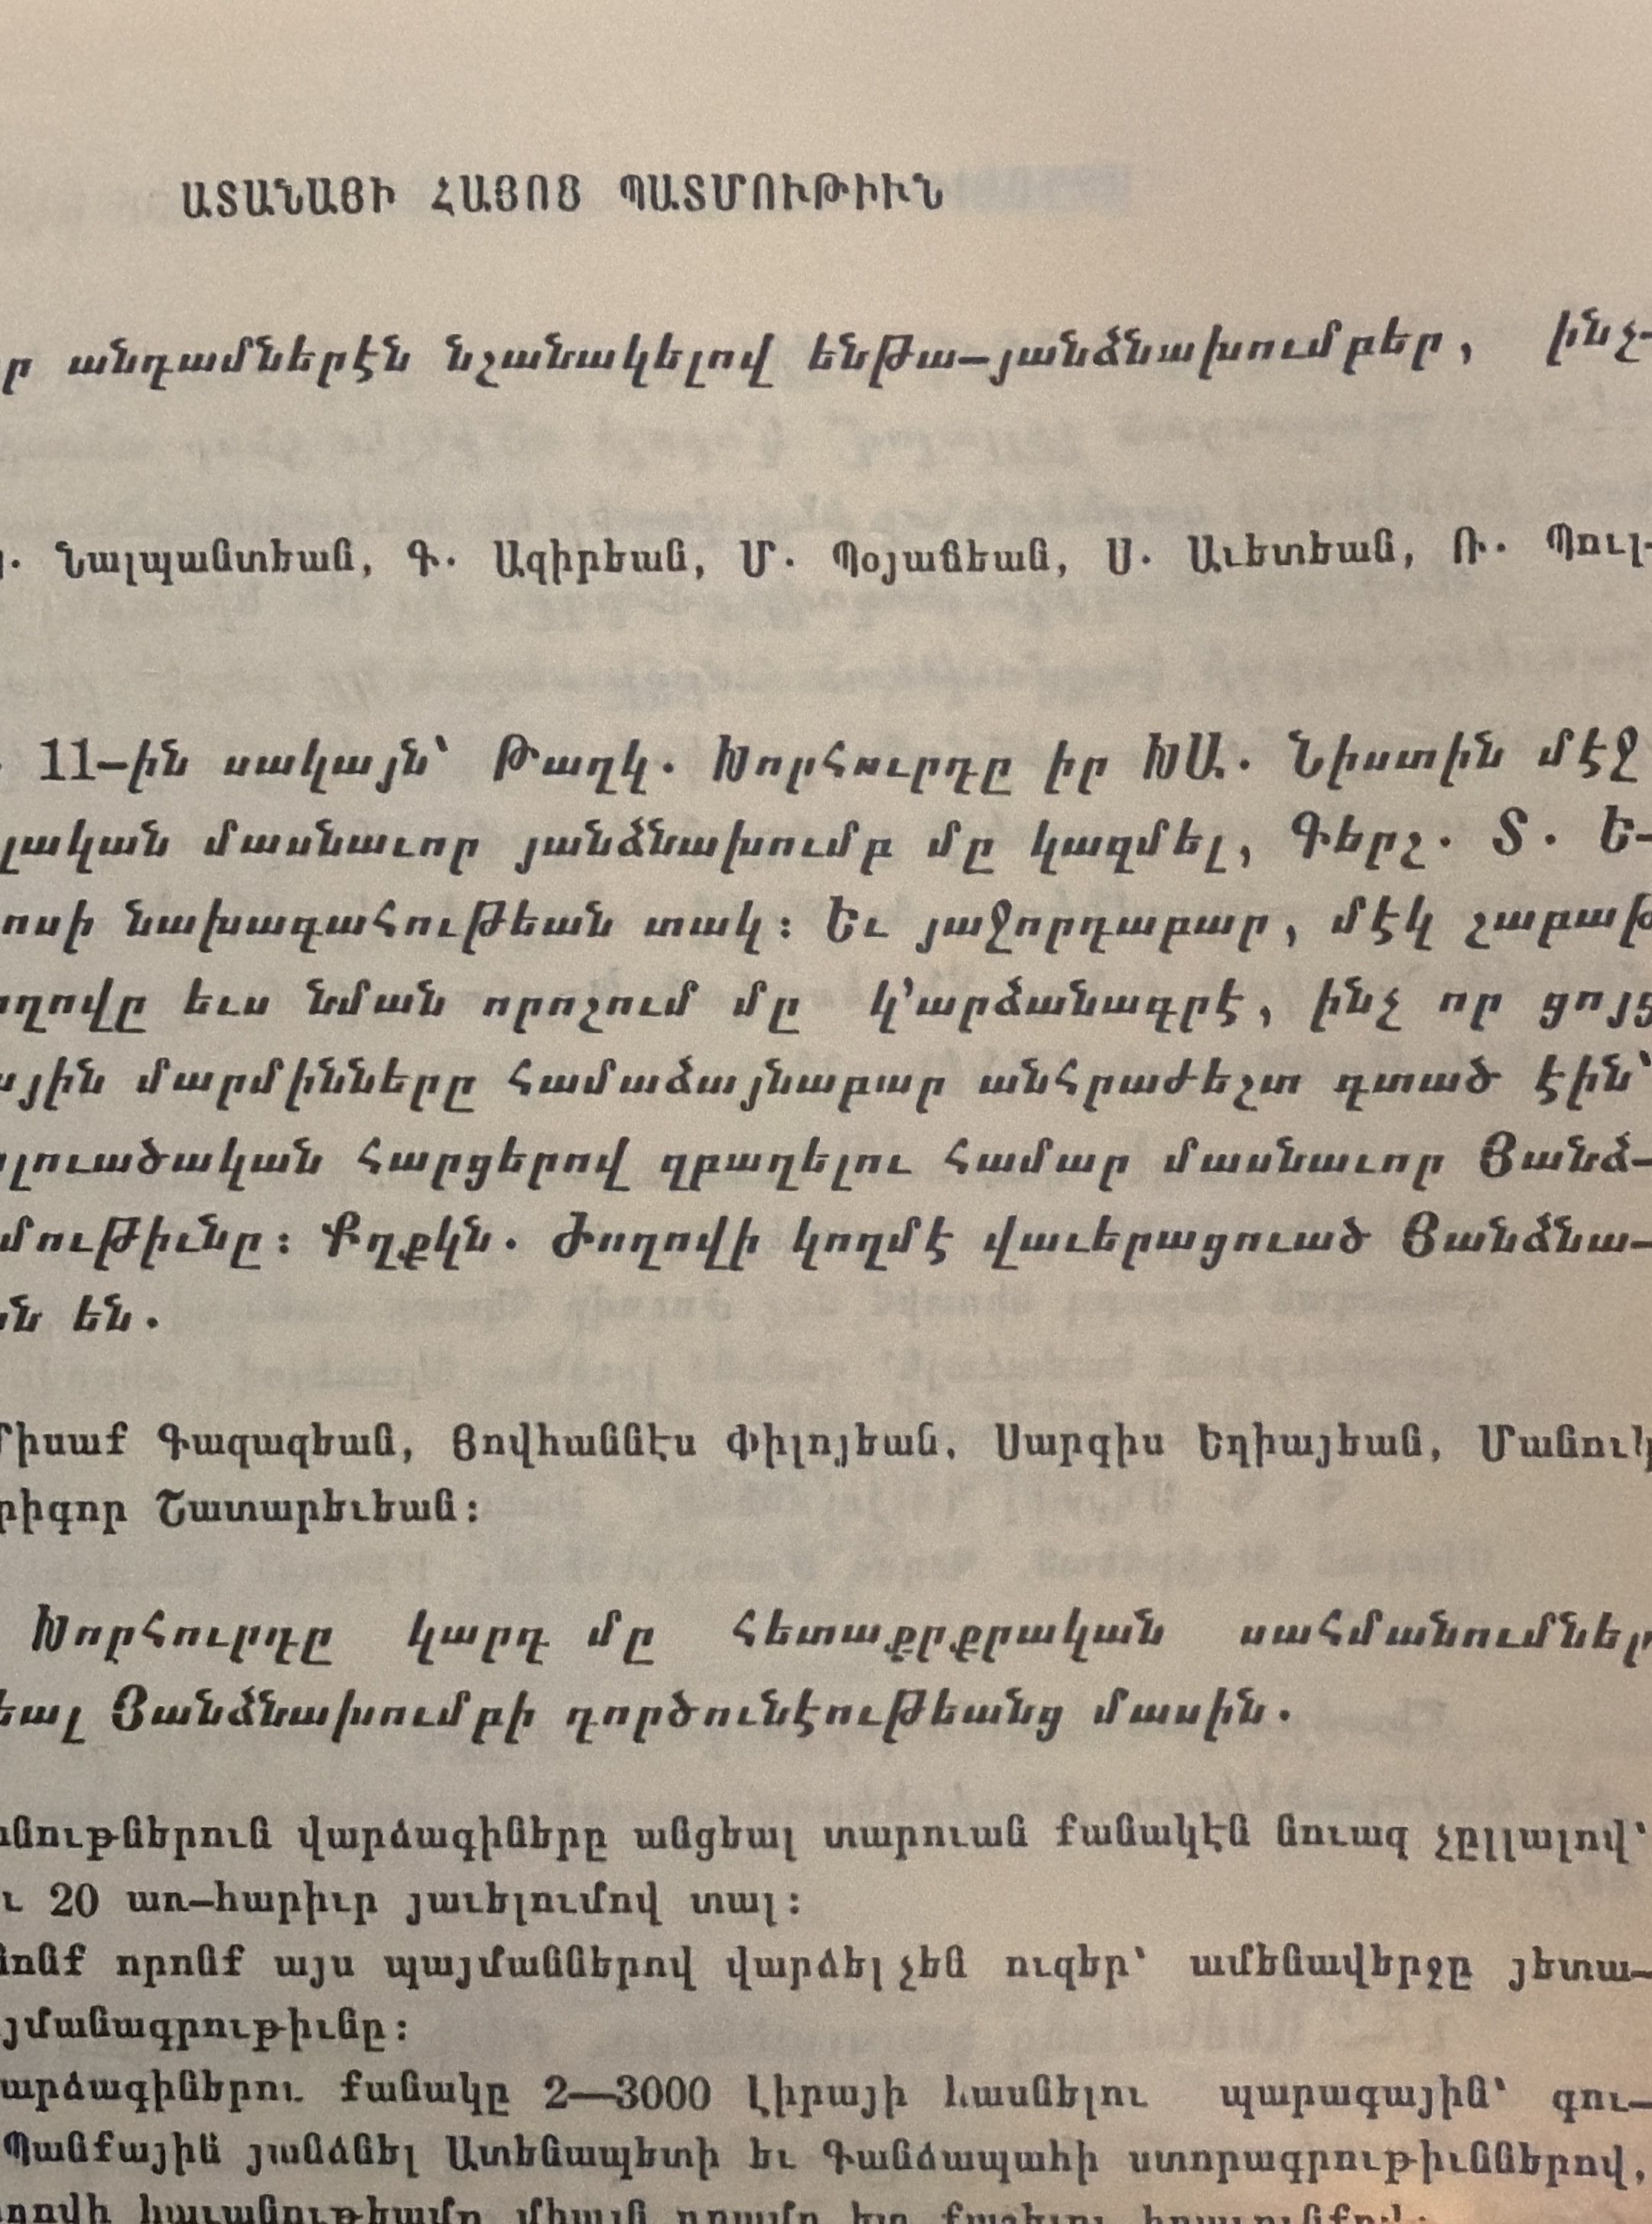 ԱՏԱՆԱՅԻ ՀԱՅՈՑ ՊԱՏՄՈՒԹԻՒՆ
ր անդամներէն նշանակելով ենթա—յանձնախումբեր, ինչ-
Նալպանտեան, Գ. Ազիրեան, Մ. Պօյաճեան, Ս. Աւետեան, Ռ. Պուլ-
11—ին սակայն՝ Թաղկ. Խորհուրդը իր ԽԱ. Նիստին մէջ
լական մասնաւոր յանձնախումբ մը կազմել, Գերշ. Տ. Ե-
ոսի նախագահութեան տակ։ Եւ յաջորդաբար, մէկ շաբաթ
ողովը եւս նման որոշում մը կ՚արձանագրէ, ինչ որ ցոյց
ային մարմինները համաձայնաբար անհրաժեշտ գտած էին՝
լուածական հարցերով զբաղելու համար մասնաւոր Յանձ—
մութիւնը։ Քղքկն. Ժողովի կողմէ վաւերացուած Յանձնա—
ն են.
Միսաք Գազազեան, Յովհաննէս Փիլոյեան, Սարգիս Եղիայեան, Մանուկ
րիգոր Շատարեւեան։
Խորհուրդը կարգ մը հետաքրքրական սահմանումներ
եալ Յանձնախումբի գործունէութեանց մասին.
նութներուն վարձագիները անցեալ տարուան քանակէն նուազ չըլլալով՝
ւ 20 առ—հարիւր յաւելումով տալ։
նոնք որոնք այս պայմաններով վարձել չեն ուզեր՝ ամենավերջը յետա—
յմանագրութիւնը։
արձագիներու քանակը 2—3000 Լիրայի հասնելու պարագային՝ գու—
Պանքային յանձնել Ատենապետի եւ Գանձապահի ստորագրութիւններով,
ողովի հաւանութեամբ միայն դրամը ետ քաշելու իրաւունքով։